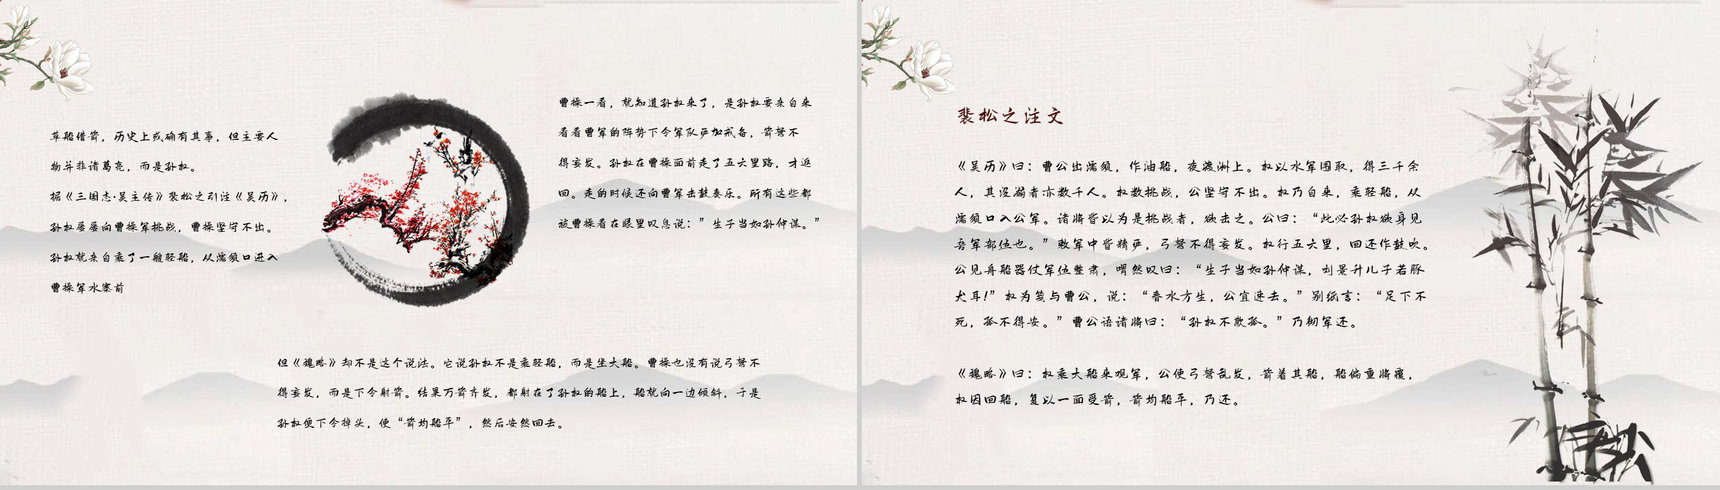 草船借箭，历史上或确有其事，但主要人
物并非诸葛亮，而是孙权。
据《三国志·吴主传》裴松之引注《吴历》，
孙权屡屡向曹操军挑战，曹操坚守不出。
孙权就亲自乘了一艘轻船，从濡须口进入
曹操军水寨前
曹操一看，就知道孙权来了，是孙权要亲自来
看看曹军的阵势下令军队严加戒备，箭弩不
得妄发。孙权在曹操面前走了五六里路，才返
回。走的时候还向曹军击鼓奏乐。所有这些都
被曹操看在眼里叹息说：”生子当如孙仲谋。”
但《魏略》却不是这个说法。它说孙权不是乘轻船，而是坐大船。曹操也没有说弓弩不
得妄发，而是下令射箭。结果万箭齐发，都射在了孙权的船上，船就向一边倾斜，于是
孙权便下令掉头，使“箭均船平”，然后安然回去。
裴松之注文
《吴历》曰：曹公出濡须，作油船，夜渡洲上。权以水军围取，得三千余
人，其没溺者亦数千人。权数挑战，公坚守不出。权乃自来，乘轻船，从
濡须口入公军。诸将皆以为是挑战者，欲击之。公曰：“此必孙权欲身见
吾军部伍也。”敕军中皆精严，弓弩不得妄发。权行五六里，回还作鼓吹。
公见舟船器仗军伍整肃，喟然叹曰：“生子当如孙仲谋，刘景升儿子若豚
犬耳!”权为笺与曹公，说：“春水方生，公宜速去。”别纸言：“足下不
死，孤不得安。”曹公语诸将曰：“孙权不欺孤。”乃彻军还。
《魏略》曰：权乘大船来观军，公使弓弩乱发，箭着其船，船偏重将覆，
权因回船，复以一面受箭，箭均船平，乃还。